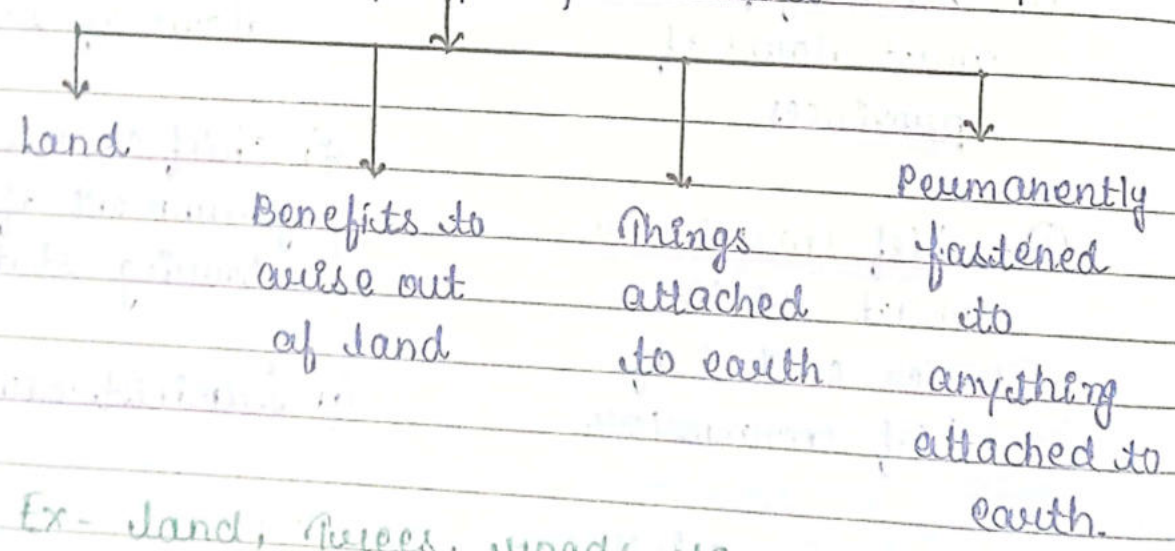 Land
Benefits to
arise out
of land
Things
attached
to earth
Permanently
fastened
to
anything
attached to
earth.
Ex- land, Trees,